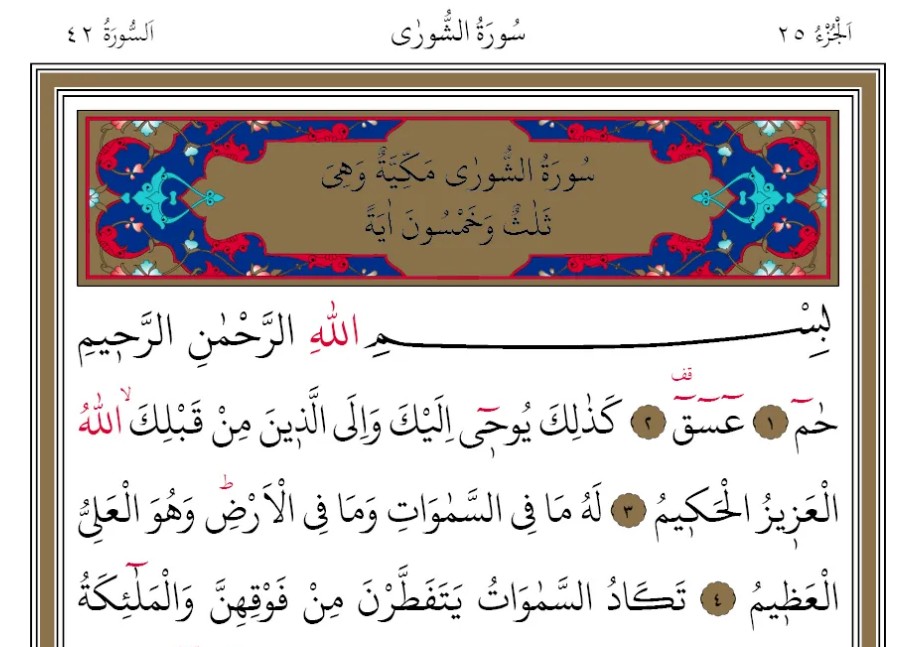 اَلْجُزْءُ ٢٥ سُورَةُ الشُّورٰى اَلسُّورَةُ ٤٢
سُورَةُ الشُّورٰى مَكِّيَّةٌ وَهِىَ
ثَلٰثٌ وَخَمْسُونَ اٰيَةً
بِسْمِ اللّٰهِ الرَّحْمٰنِ الرَّحٖيمِ
حٰمٓ ﴿١﴾ عٓسٓقٓ ۗقف ﴿٢﴾ كَذٰلِكَ يُوحٖٓى اِلَيْكَ وَاِلَى الَّذٖينَ مِنْ قَبْلِكَۙ اللّٰهُ
الْعَزٖيزُ الْحَكٖيمُ ﴿٣﴾ لَهُ مَا فِى السَّمٰوَاتِ وَمَا فِى الْاَرْضِؕ وَهُوَ الْعَلِىُّ
الْعَظٖيمُ ﴿٤﴾ تَكَادُ السَّمٰوَاتُ يَتَفَطَّرْنَ مِنْ فَوْقِهِنَّ وَالْمَلٰٓئِكَةُ